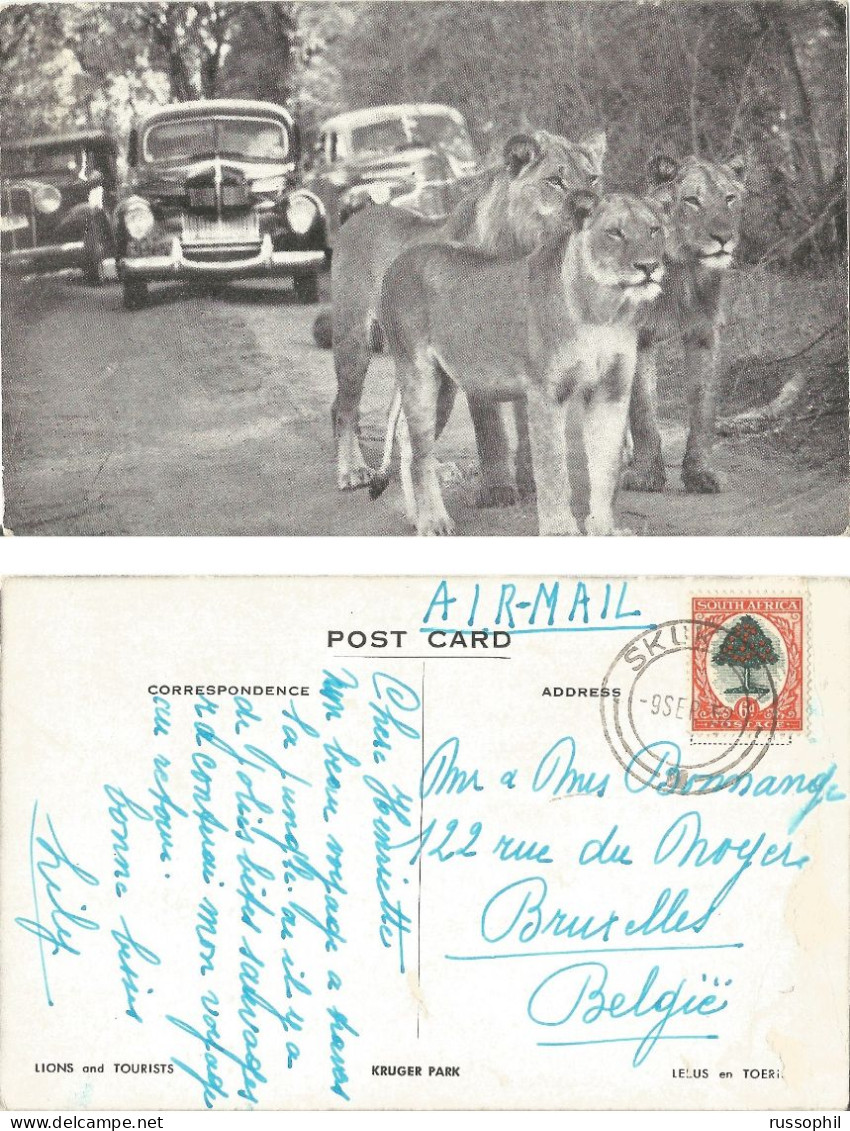 AIR-MAIL
POST CARD
CORRESPONDENCE
ADDRESS
SOUTH AFRICA
6d
POSTAGE
SKUK
-9 SEP
Chere Henriette
Un beau voyage a travers
la jungle. ou il y a
de jolies bêtes sauvages
et continuerai mon voyage
au retour.
bonne bises
Lily
Mr a Mrs Bonnange
122 rue du Noyer
Bruxelles
België
LIONS and TOURISTS
KRUGER PARK
LEEUS en TOERI
russophil
www.delcampe.net